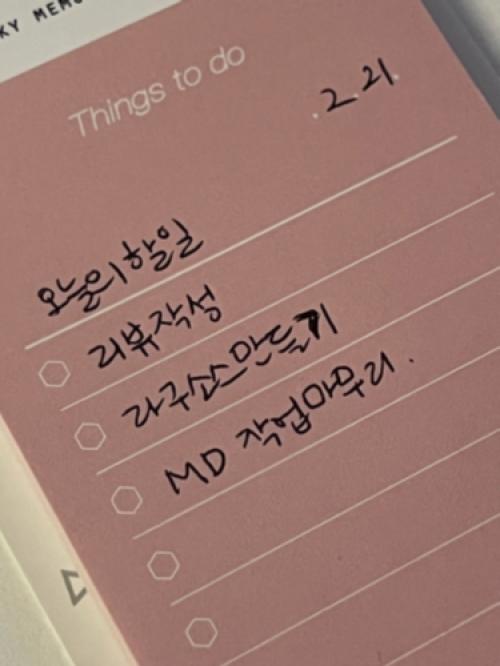 KY MEMO
Things to do
.2.21.
오늘의할일
리뷰작성
라구소스만들기
MD 작업마무리.